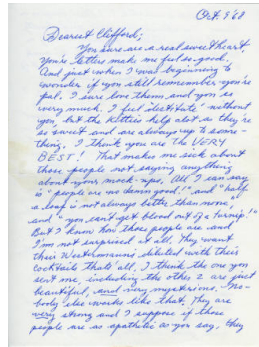 Oct. 9 '68
Dearest Clifford;
You sure are a real sweetheart,
You're letters make me feel so good.
And just when I was beginning to
wonder if you still remember you're
gal. I sure love them, and you so
very much. I feel destitute without
you, but the Kitties help alot as they're
so sweet and are always up to some-
thing. I think you are the VERY
BEST! That makes me sick about
those people not saying anything
about your mock-ups. All I can say
is "people are no damn good!" and "half
a loaf is not always better than none"
and "you can't get blood out of a turnip."
But I know how those people are and
I'm not surprised at all. They want
their Westermanns diluted with their
cocktails thats all. I think the one you
sent me, including the other 2 are just
beautiful, and very mysterious. No-
body else works like that. They are
very strong and I suppose if those
people are as apathetic as you say, they